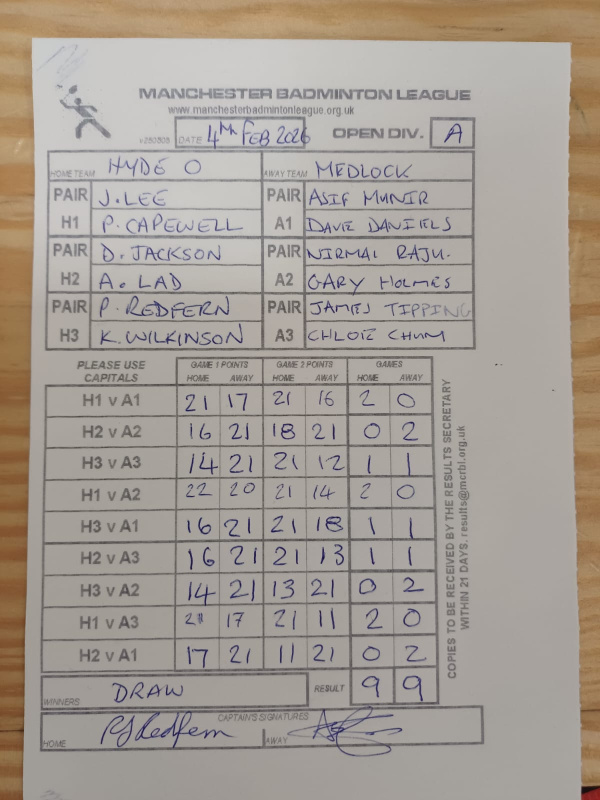 MANCHESTER BADMINTON LEAGUE
www.manchesterbadmintonleague.org.uk
v250805 DATE 4TH FEB 2026 OPEN DIV. A
HOME TEAM HYDE O AWAY TEAM MEDLOCK
PAIR J. LEE PAIR ASIF MUNIR
H1 P. CAPEWELL A1 DAVE DANIELS
PAIR D. JACKSON PAIR NIRMAL RAJU.
H2 A. LAD A2 GARY HOLMES
PAIR P. REDFERN PAIR JAMES TIPPING
H3 K. WILKINSON A3 CHLOE CHUM
PLEASE USE CAPITALS GAME 1 POINTS GAME 2 POINTS GAMES
HOME AWAY HOME AWAY HOME AWAY
H1 v A1 21 17 21 16 2 0
H2 v A2 16 21 18 21 0 2
H3 v A3 14 21 21 12 1 1
H1 v A2 22 20 21 14 2 0
H3 v A1 16 21 21 18 1 1
H2 v A3 16 21 21 13 1 1
H3 v A2 14 21 13 21 0 2
H1 v A3 21 17 21 11 2 0
H2 v A1 17 21 11 21 0 2
WINNERS DRAW RESULT 9 9
CAPTAIN'S SIGNATURES
HOME PJ Redfern AWAY
COPIES TO BE RECEIVED BY THE RESULTS SECRETARY
WITHIN 21 DAYS. results@mcrbl.org.uk